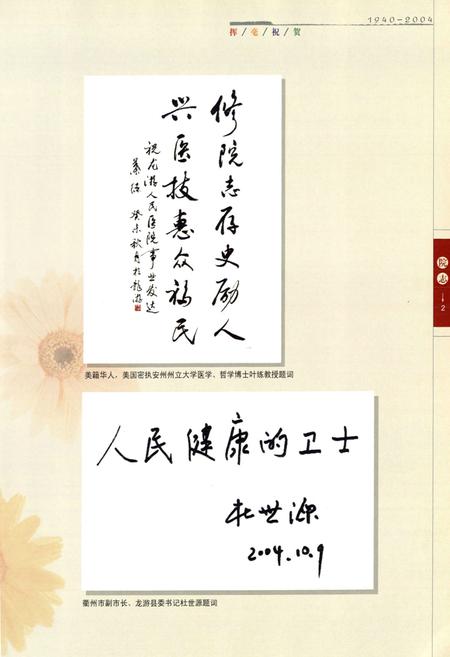 1940-2004
挥/毫/祝/贺
修院志存史励人
兴医技惠众福民
祝龙游人民医院事业发达
癸未秋月于龙游
美籍华人，美国密执安州州立大学医学、哲学博士叶练教授题词
人民健康的卫士
杜世源
2004.10.9
衢州市副市长、龙游县委书记杜世源题词
院志
2